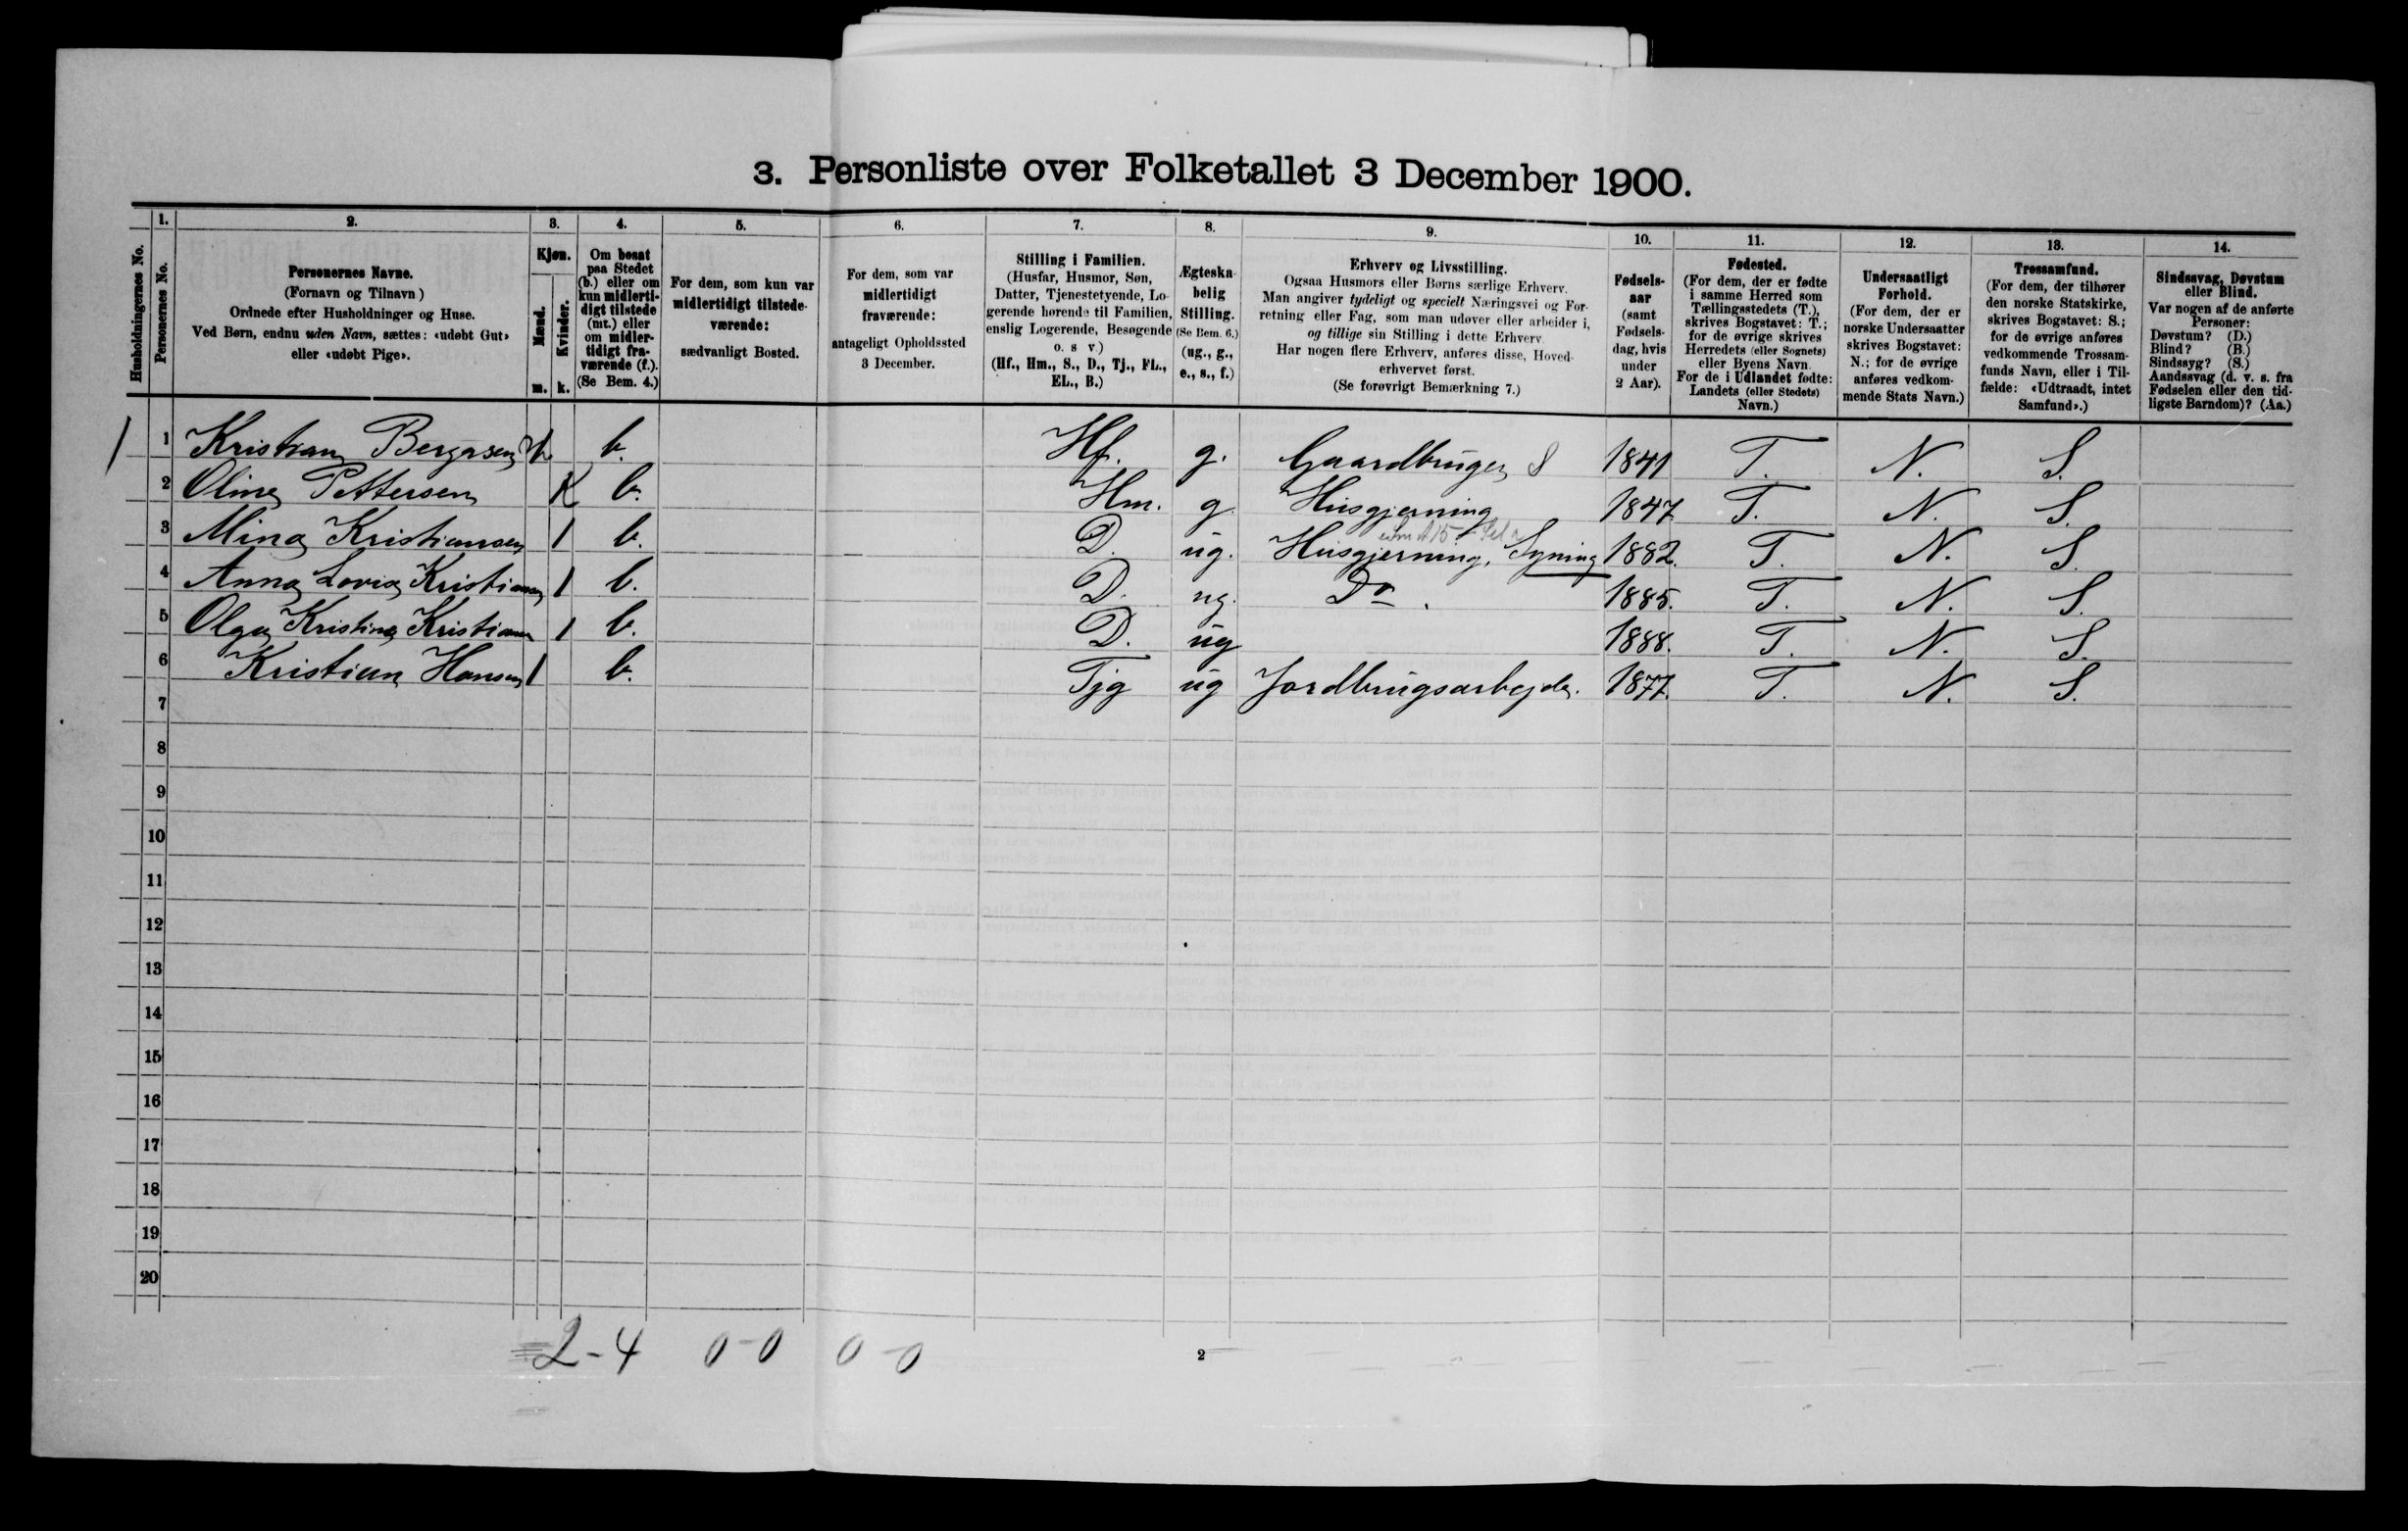 3. Personliste over Folketallet 3 December 1900.
Husholdningernes No.
1.
Personernes No.
2.
Personernes Navne.
(Fornavn og Tilnavn)
Ordnede efter Husholdninger og Huse.
Ved Børn, endnu uden Navn, sættes: «udøbt Gut»
eller «udøbt Pige».
3.
Kjøn.
Mænd.
Kvinder.
m. k.
4.
Om bosat
paa Stedet
(b.) eller om
kun midlerti-
digt tilstede
(mt.) eller
om midler-
tidigt fra-
værende (f.).
(Se Bem. 4.)
5.
For dem, som kun var
midlertidigt tilstede-
værende:
sædvanligt Bosted.
6.
For dem, som var
midlertidigt
fraværende:
antageligt Opholdssted
3 December.
7.
Stilling i Familien.
(Husfar, Husmor, Søn,
Datter, Tjenestetyende, Lo-
gerende hørende til Familien,
enslig Logerende, Besøgende
o. s v.)
(Hf., Hm., S., D., Tj., FL.,
EL., B.)
8.
Ægteska-
belig
Stilling.
(Se Bem. 6.)
(ug., g.,
e., s., f.)
9.
Erhverv og Livsstilling.
Ogsaa Husmors eller Børns særlige Erhverv.
Man angiver tydeligt og specielt Næringsvei og For-
retning eller Fag, som man udøver eller arbeider i,
og tillige sin Stilling i dette Erhverv.
Har nogen flere Erhverv, anføres disse, Hoved-
erhvervet først.
(Se forøvrigt Bemærkning 7.)
10.
Fødsels-
aar
(samt
Fødsels-
dag, hvis
under
2 Aar).
11.
Fødested.
(For dem, der er fødte
i samme Herred som
Tællingsstedets (T.),
skrives Bogstavet: T.;
for de øvrige skrives
Herredets (eller Sognets)
eller Byens Navn.
For de i Udlandet fødte:
Landets (eller Stedets)
Navn.)
12.
Undersaatligt
Forhold.
(For dem, der er
norske Undersaatter
skrives Bogstavet:
N.; for de øvrige
anføres vedkom-
mende Stats Navn.)
13.
Trossamfund.
(For dem, der tilhører
den norske Statskirke,
skrives Bogstavet: S.;
for de øvrige anføres
vedkommende Trossam-
funds Navn, eller i Til-
fælde: «Udtraadt, intet
Samfund».)
14.
Sindssvag, Døvstum
eller Blind.
Var nogen af de anførte
Personer:
Døvstum? (D.)
Blind? (B.)
Sindssyg? (S.)
Aandssvag (d. v. s. fra
Fødselen eller den tid-
ligste Barndom)? (Aa.)
1 1 Kristian b. Hf. g. Gaardbruger S 1841 T. N. S.
2 Oline Pettersen K b. Hm. g. Husgjerning 1847 T. N. S.
3 Mina Kristiansen 1 b. D. ug. Husgjerning, Syning 1882. T. N. S.
4 Anna Lovisa Kristiansen 1 b. D. ug. Do. 1885. T. N. S.
5 Olga Kristina Kristiansen 1 b. D. ug 1888. T. N. S.
6 Kristian Hansen 1 b. Tjg ug Jordbrugsarbejder. 1877. T. N. S.
7
8
9
10
11
12
13
14
15
16
17
18
19
20
2-4 0-0 0-0
2